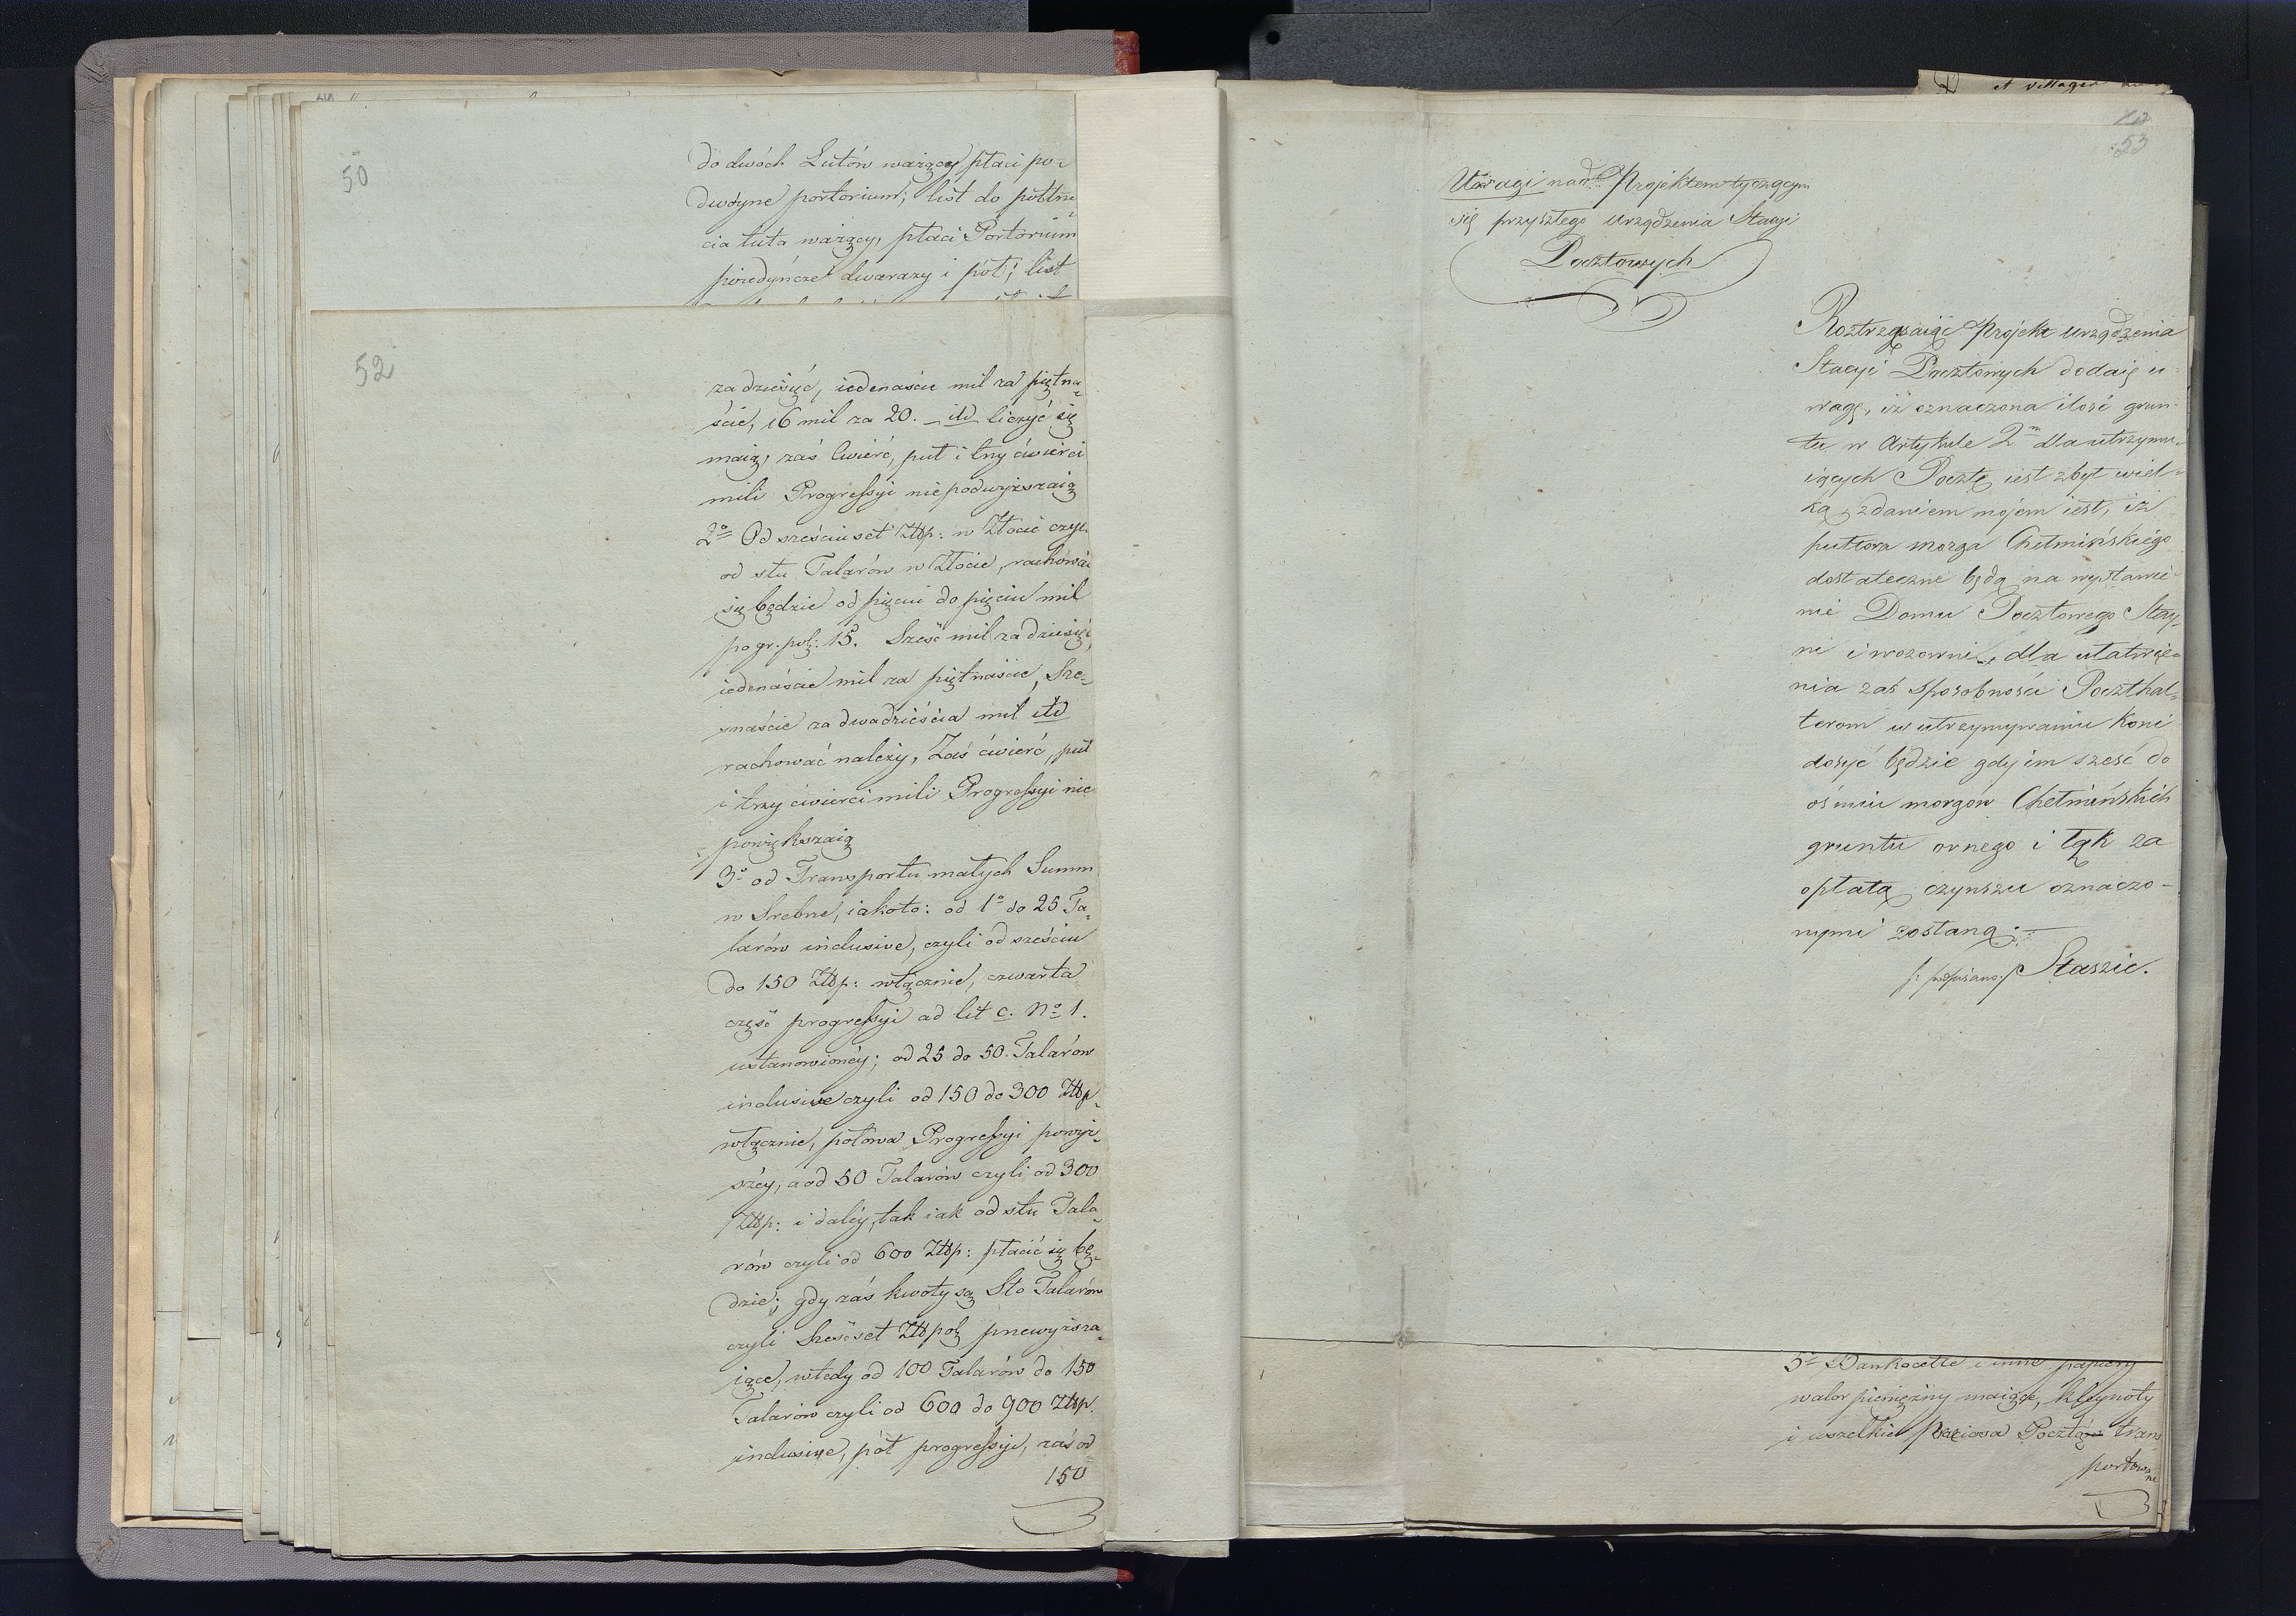 50
do dwóch Lutów ważący płaci po-
dwóyne portorium; list do półtrze-
cia łuta ważący, płaci Portorium
poiedyńcze dwarazy i pół; list
52
za dziesięć, iedenaście mil za piętna-
ście, 16 mil za 20. itd liczyć się
maią, zaś ćwierć, puł i trzy ćwierci
mili Progressyi niepodwyższaią
2o Od sześciuset Złłp: w Złocie czyli
od stu Talarów w Złocie, rachować
się będzie od pięciu do pięciu mil
po gr. pol: 15. Sześć mil za dziesięć,
iedenaście mil za piętnaście, Sze-
snaście za dwadzieścia mil itd
rachować należy, Zaś ćwierć, puł
i trzy ćwierci mili Progressyi nie
powiększaią
3o od Transportu małych Summ
w Srebrze, iakoto: od 1o do 25 Ta-
larów inclusive, czyli od sześciu
do 150 Złłp: włącznie, czwarta
część progressyi ad lit c. No 1.
ustanowionéy; od 25 do 50. Talarów
inclusive czyli od 150 do 300 Złłp.
włącznie, połowa Progressyi powyż-
széy, a od 50 Talarów czyli od 300
Złłp: i daléy, tak iak od stu Tala-
rów czyli od 600 Złłp: płacić się bę-
dzie; gdy zaś kwoty są Sto Talarów
czyli Sześćset Złłpol przewyższa-
iące, wtedy od 100 Talarów do 150
Talarów czyli od 600 do 900 Złłp.
inclusive, pół progressyi, zaś od
150
53
Uwagi nad Projektem tyczącym
się przyszłego urządzenia Stacyi
Pocztowych
Roztrząsaiąc Projekt urządzenia
Stacyi Pocztowych dodaię u-
wagę, iż oznaczona ilość grun-
tu w Artykule 2m dla utrzymu-
iących Pocztę iest zbyt wiel-
ką, zdaniem mojem iest, iż
pułtora morga Chełmińskiego
dostateczne będą na wystawie-
nie Domu Pocztowego Stay-
ni i wozowni, dla ułatwie-
nia zaś sposobności Poczthal-
terom w utrzymywaniu koni
dosyć będzie gdy im sześć do
ośmiu morgów Chełmińskich
gruntu ornego i łąk za
opłatą czynszu oznaczo-
nymi zostaną.
/: podpisano :/ Staszic.
5o Bankocetle i inne papiery
walor pieniężny maiące, kleynoty
i wszelkie Pretiosa Pocztą trans-
portowane